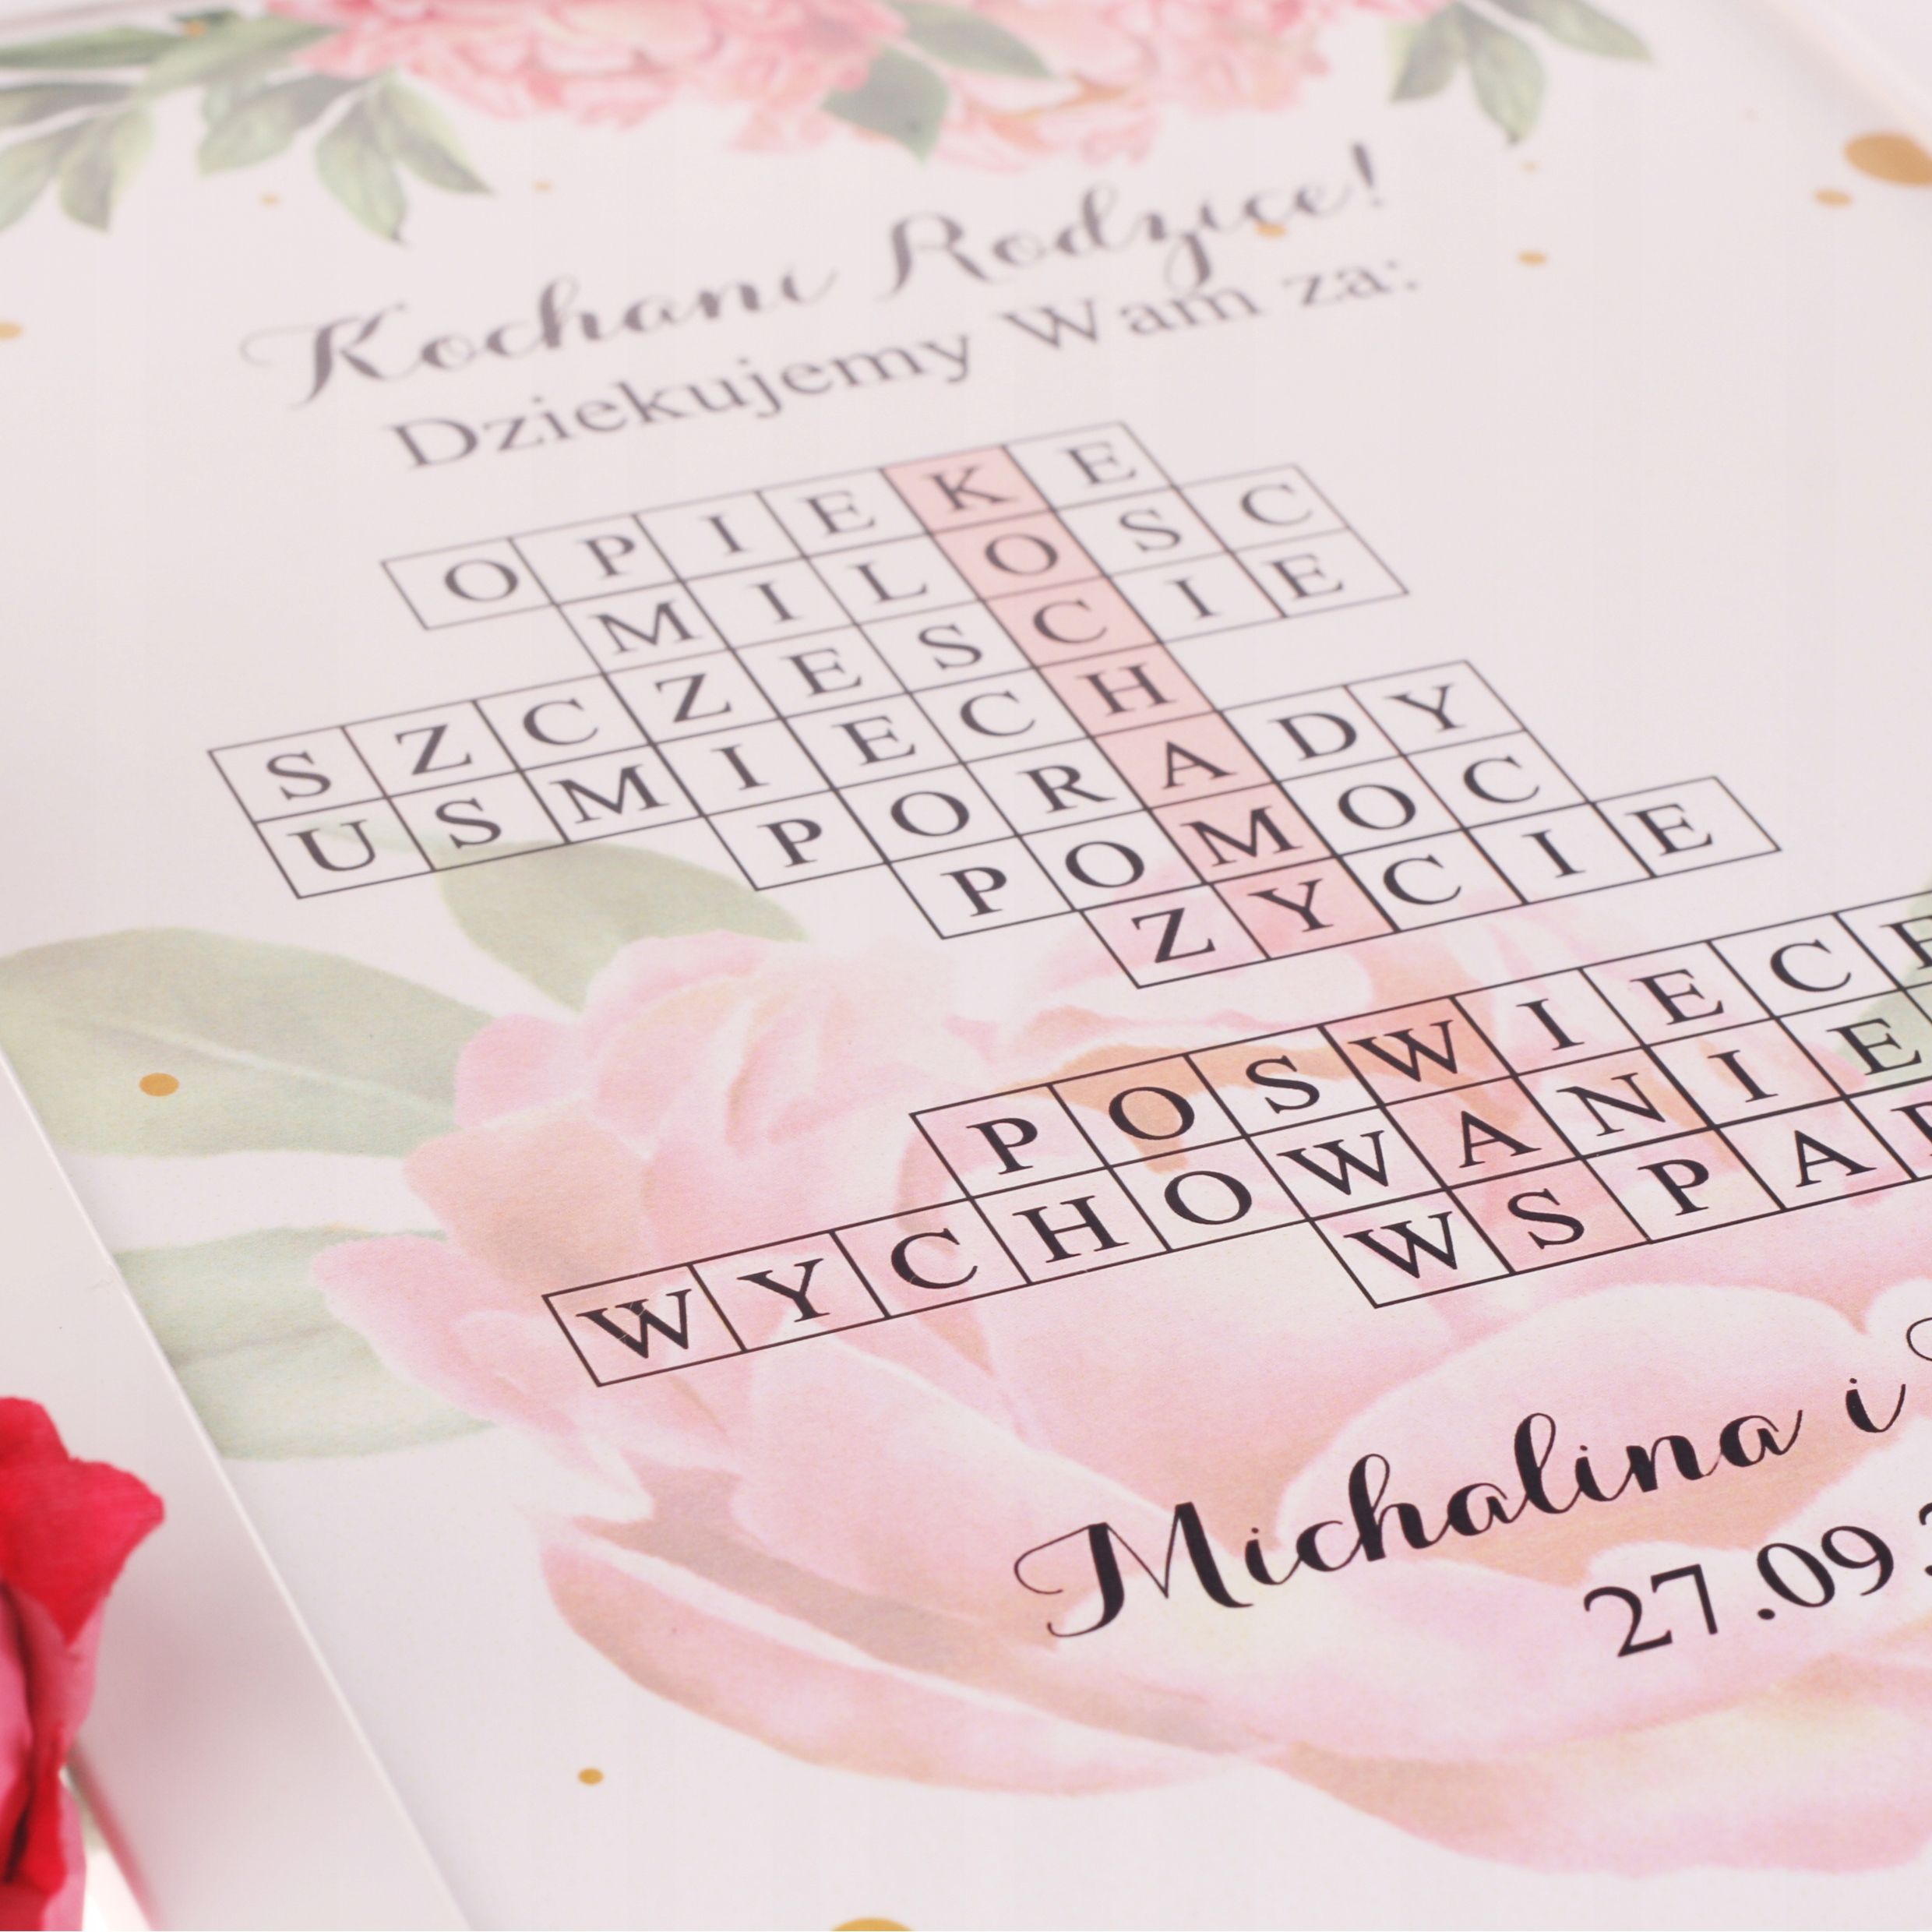 Kochani Rodzice!
Dziekujemy Wam za:
OPIEKE
MILOSC
SZCZESCIE
USMIECH
PORADY
POMOC
ZYCIE
POSWIECE
WYCHOWANIE
WSPA
Michalina i
27.09.